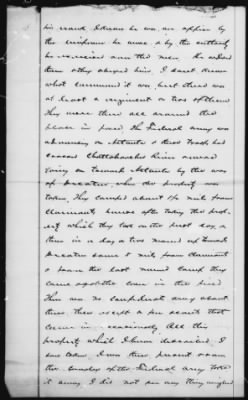 his rank. I know he was an officer by
the uniform he wore & by the authority
he exercised over the men. He ordered
them & they obeyed him. I dont know
what command it was, but there was
at least a regiment or two of them
They were there all around this
place in force, the Federal army was
advancing on Atlanta & their troops had
crossed Chattahoochee River and were
going on towards Atlanta by the way
of Decatur, when this property was
taken, They camped about 1/2 mile from
claimants house after taking this prop-
erty which they took on the first day, &
then in a day or two moved up towards
Decatur some 2 miles from claimants
& from the last named camp they
came after the corn in the field
There was no confederate army about
there then except a few scouts that
come in occasionally. All this
property which I have described, I
saw taken, I was there present & saw
the troops of the Federal army take
it away, I did not see any thing weighed